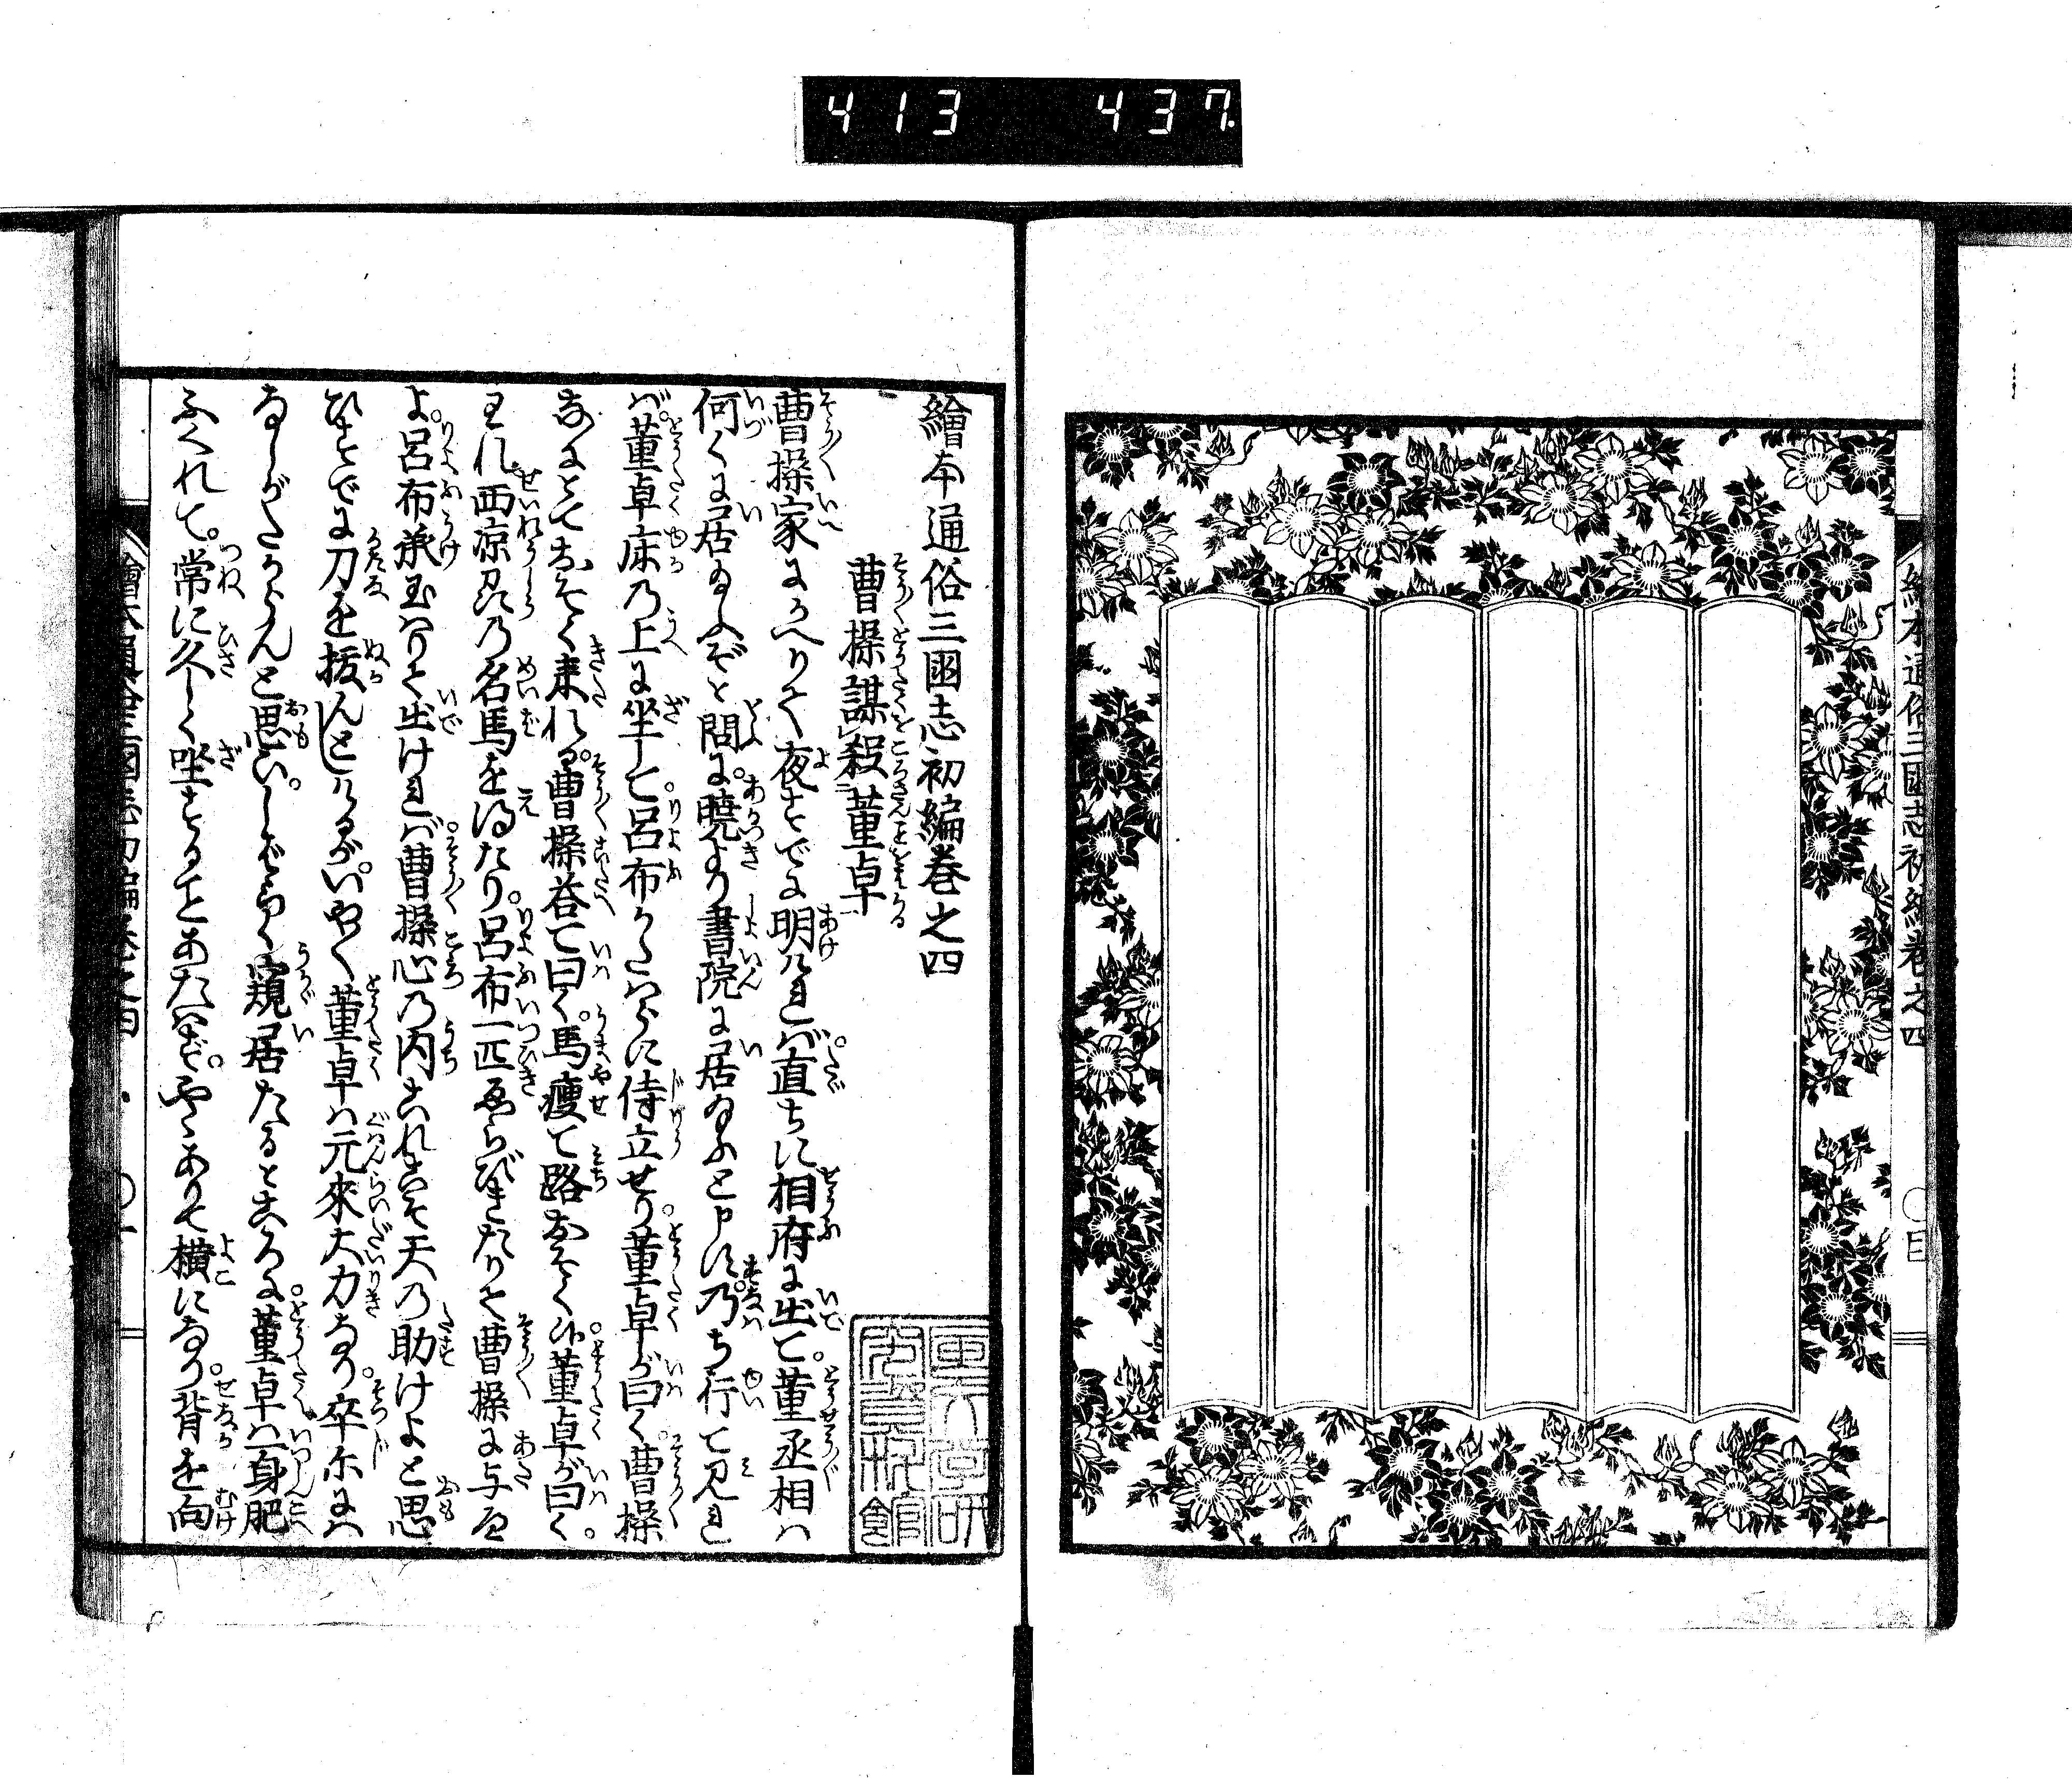 413 437
繪本通俗三國志初編巻之四
○目
繪本通俗三國志初編巻之四
曹操謀殺董卓
曹操家にかへりて夜すでに明ければ直ちに相府に出て。董丞相は
何くに居給ふぞと問に。暁より書院に居給ふと申す。乃ち行て見れ
ば。董卓床の上に坐して。呂布かたはらに侍立せり。董卓が曰く。曹操
なにとておそく来れる。曹操荅て曰く。馬痩て路おそく候。董卓が曰く。
われ西凉の名馬を得たり。呂布一匹ゑらびきたりて曹操に与へ
よ。呂布承玉はりて出ければ。曹操心の内これこそ天の助けよと思ひ
すでに刀を抜んとしけるが。いやく董卓は元來大力なり。卒尓には
なしがたからんと思ひ。しばらく窺居たるところに。董卓は一身肥
ふくれて。常に久しく坐することあたはず。やゝありて横になり。背を向
繪本通俗三國志初編巻之四 ○一